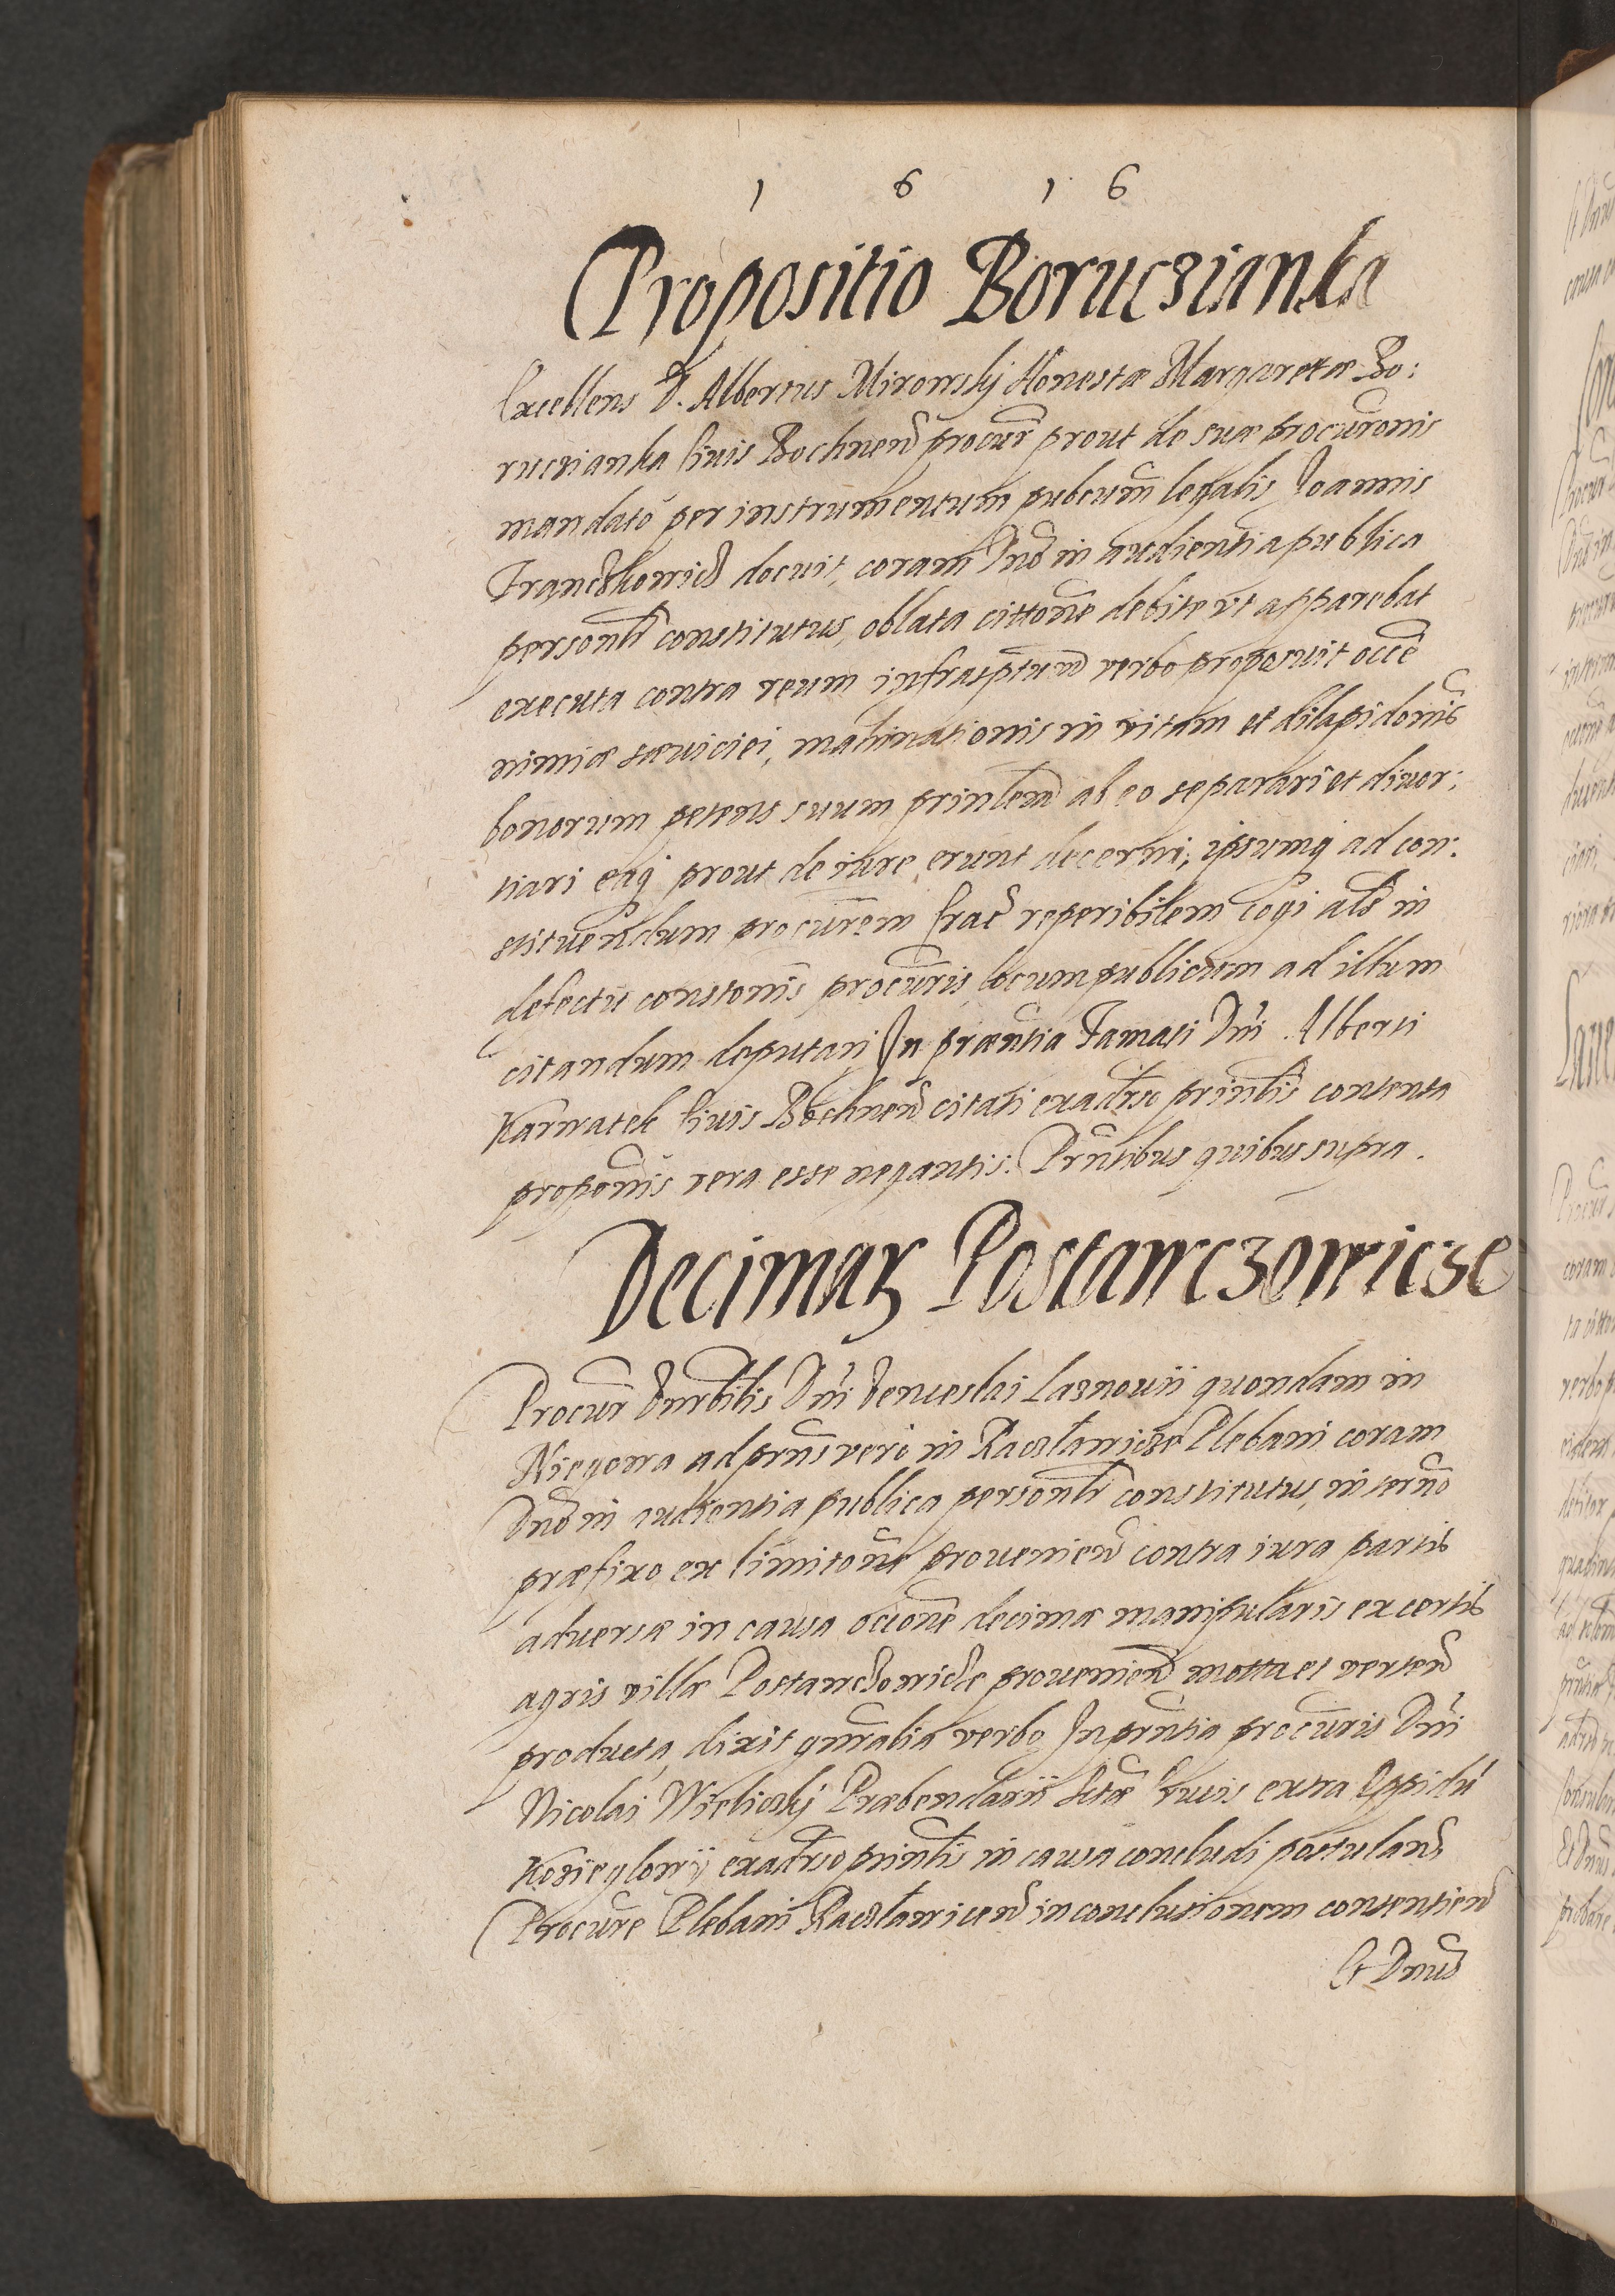 1 6 1 6
Propositio Boruczianka
Excellens D. Albertus Mirowskj Honestæ Margaretæ Bo:
ruczianka Ciuis Bochnen procur prout de suæ procuronis
mandato per instrumentum pubcum legalis Joannis
docuit, coram Dno in audientia publica
personlr constitutus, oblata cittone debite vt apparebat
executa contra reum infrasptum verbo proposuit occe
nimiæ sæuiciei, machinationis in vitam et dilapidonis
bonorum petens suum prinlem ab eo separari et diuor:
tiari eaq prout de iure erunt decerni, ipsumq ad con:
stituendum procurem reperibilem cogi als in
defectu constonis procuris locum publicum ad illum
citandum deputari In præntia Famati Dni Alberti
Karwatek Ciuis Bochnen citati exaduso prinlis contenta
proponis vera esse negantis. Prntibus quibus supra.
Decimar Postawczowicze
Procur Dni Venceslai Laznouii quondam in
Niegowa ad prns vero in Raczławicze Plebani coram
Dno in audientia publica personlr constitutus, in terno
præfixo ex limitone prouenien contra iura partis
aduersæ in causa occone decimæ manipularis ex certis
agris villæ Postawczowicze prouenien mota et verten
producta, dixit gnralia verbo In prntia procuris Dni
Nicolai Wielicskj Præbendarii Sctæ Crucis extra Oppidu
Kozieglowy exaduso prinlis in causa concludi postulans
Procure Plebani Raczławicen in conclusionem consentien
Et Dnus